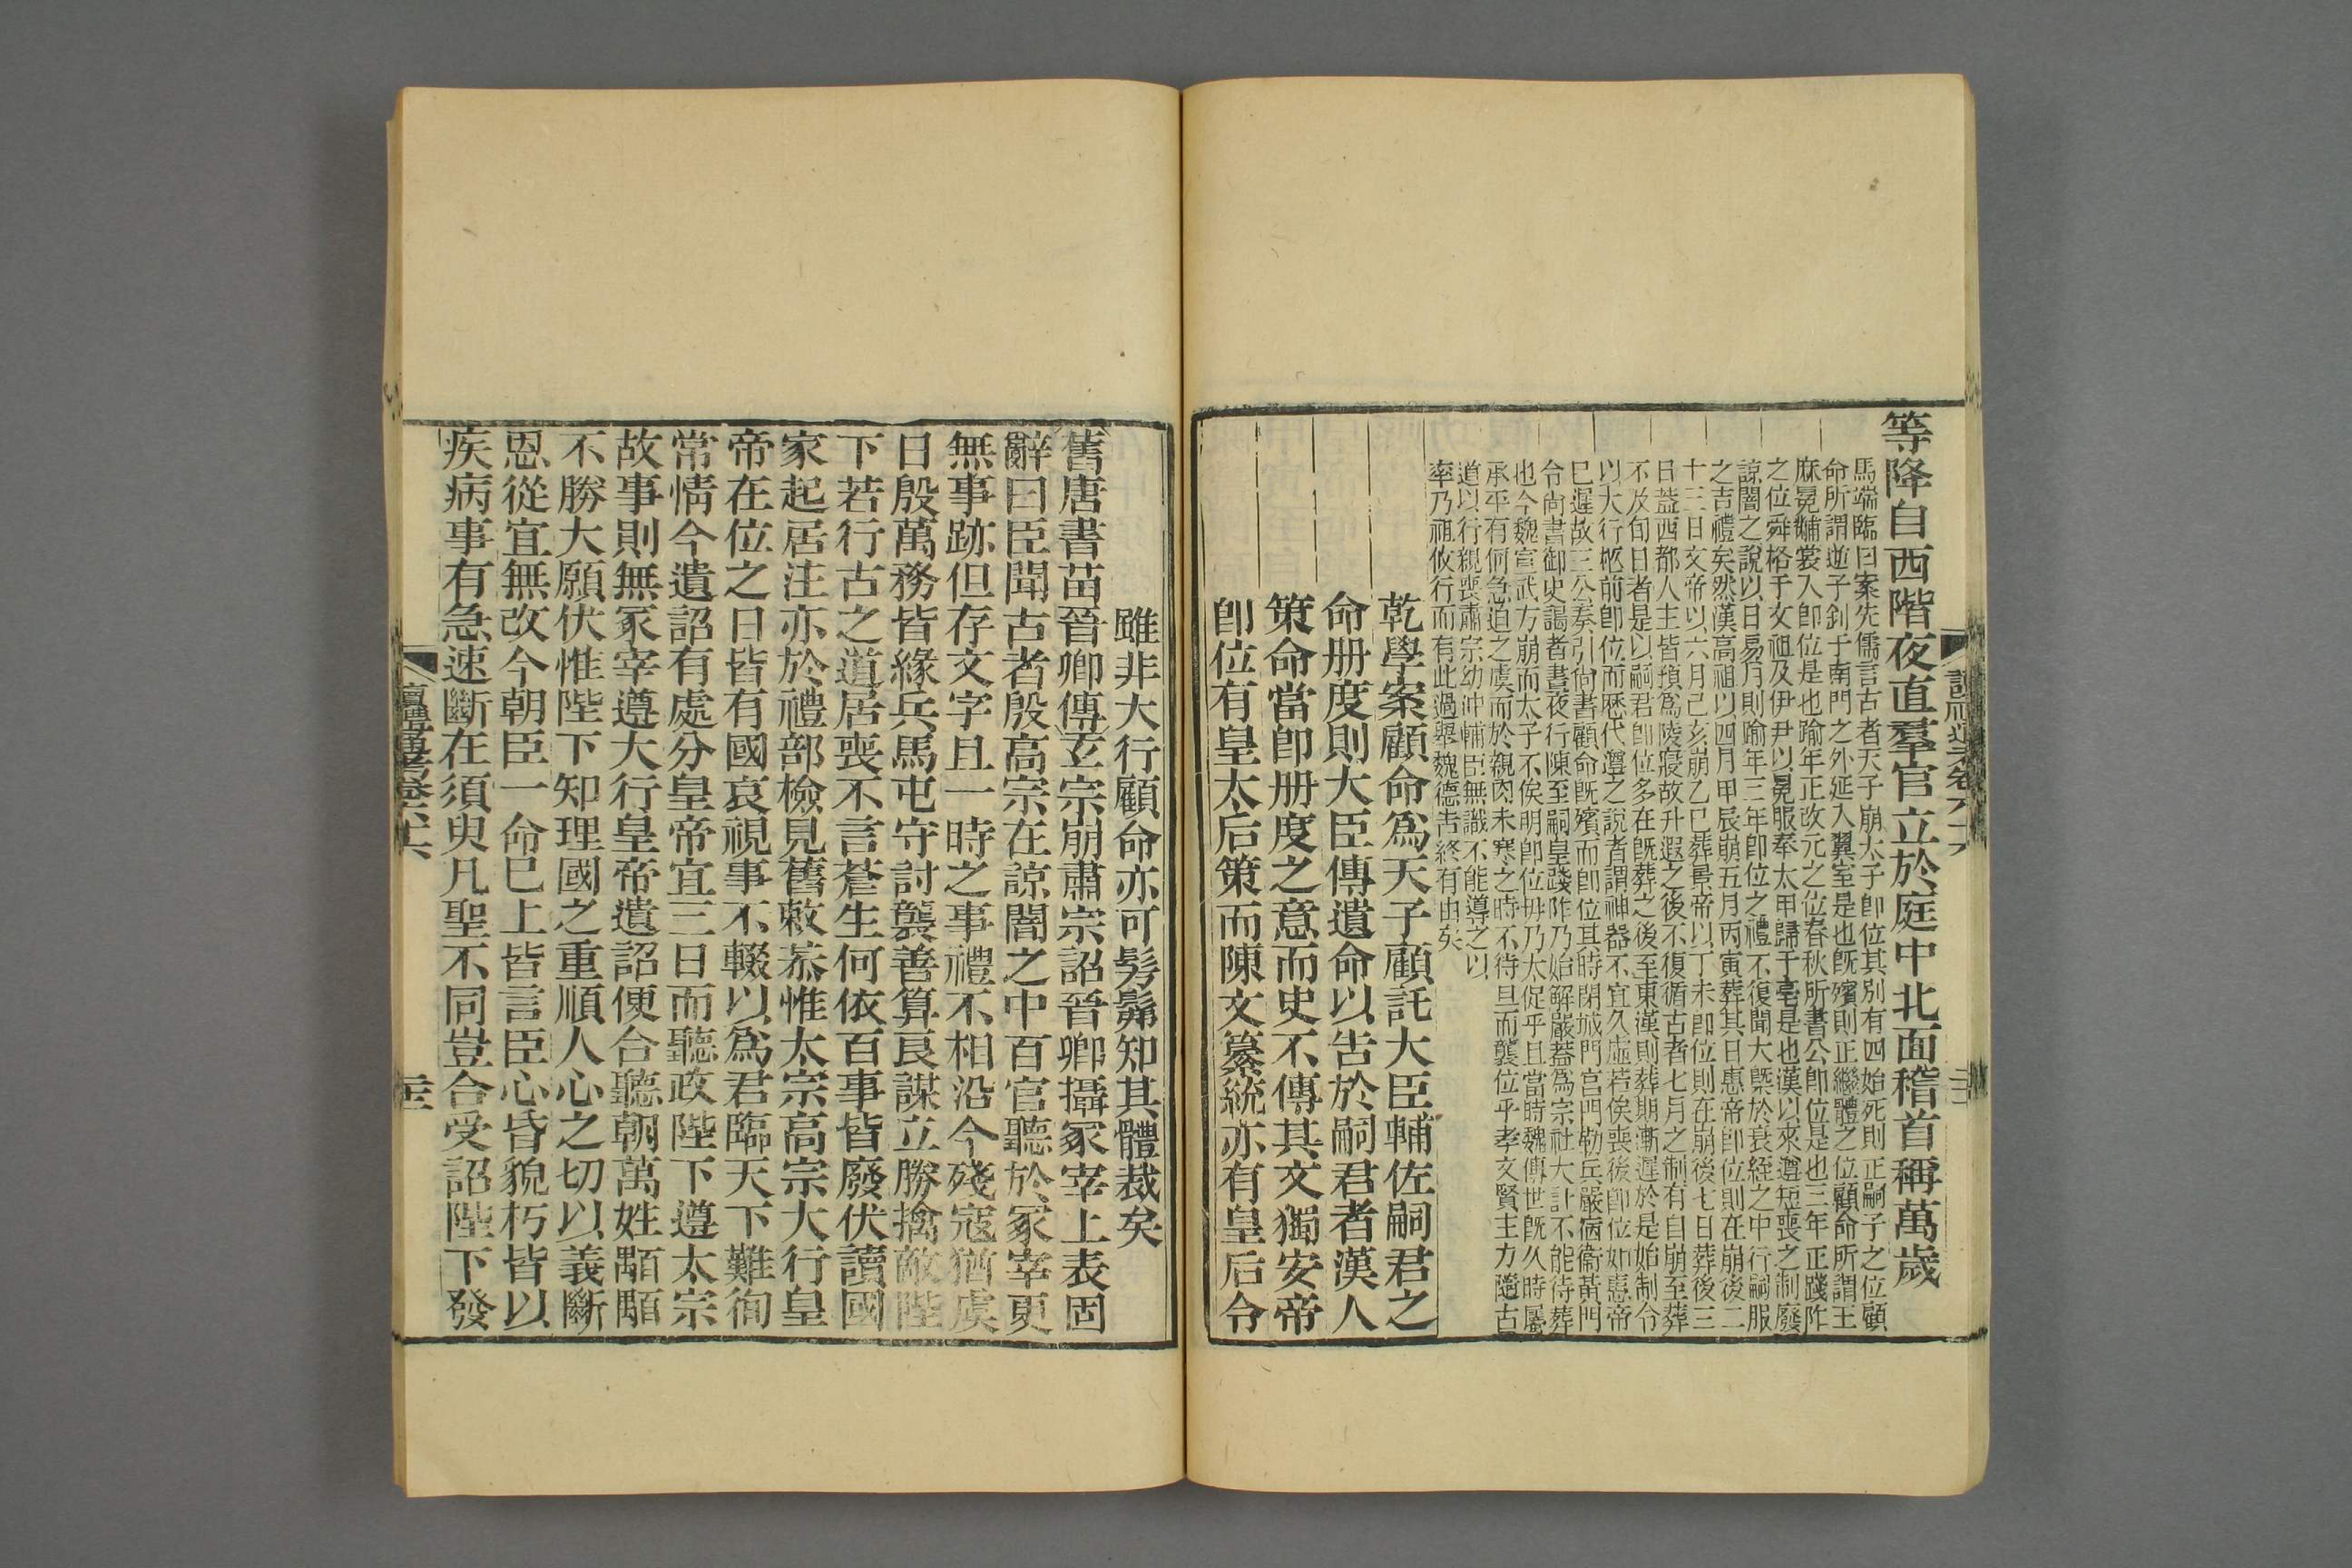 等降自西階夜直羣官立於庭中北面稽首稱萬歲
馬端臨曰案先儒言古者天子崩太子卽位其別有四始死則正嗣子之位顧
命所謂逆子釗于南門之外延入翼室是也旣殯則正繼體之位顧命所謂王
麻冕黼裳入卽位是也踰年正改元之位春秋所書公卽位是也三年正踐阼
之位舜格于文祖及伊尹以冕服奉太甲歸于亳是也漢以來遵短喪之制廢
諒闇之說以日易月則踰年三年卽位之禮不復聞大槩於衰絰之中行嗣服
之吉禮矣然漢高祖以四月甲辰崩五月丙寅葬其日惠帝卽位則在崩後二
十三日文帝以六月己亥崩乙巳葬景帝以丁未卽位則在崩後七日葬後三
日蓋西都人主皆預爲陵寢故升遐之後不復循古者七月之制有自崩至葬
不及旬日者是以嗣君卽位多在旣葬之後至東漢則葬期漸遲於是始制令
以大行柩前卽位而歷代遵之說者謂神器不宜久虛若俟喪後卽位如惠帝
已遲故三公奏引尙書顧命旣殯而卽位其時閉城門宮門勒兵嚴宿衞黃門
令尙書御史謁者晝夜行陳至嗣皇踐阼乃始解嚴蓋爲宗社大計不能待葬
也今魏宣武方崩而太子不俟明卽位毋乃太促乎且當時魏傳世旣久時屬
承平有何急迫之虞而於親肉未寒之時不待旦而襲位乎孝文賢主力隨古
道以行親喪肅宗幼沖輔臣無識不能導之以
率乃祖攸行而有此過舉魏德告終有由矣
乾學案顧命爲天子顧託大臣輔佐嗣君之
命册度則大臣傳遺命以告於嗣君者漢人
策命當卽册度之意而史不傳其文獨安帝
卽位有皇太后策而陳文纂統亦有皇后令
雖非大行顧命亦可髣髴知其體裁矣
舊唐書苗晉卿傳玄宗崩肅宗詔晉卿攝冢宰上表固
辭曰臣聞古者殷高宗在諒闇之中百官聽於冢宰更
無事跡但存文字且一時之事禮不相沿今殘寇猶虞
日殷萬務皆緣兵馬屯守討襲善算良謀立勝擒敵陛
下若行古之道居喪不言蒼生何依百事皆廢伏讀國
家起居注亦於禮部檢見舊敕恭惟太宗高宗大行皇
帝在位之日皆有國哀視事不輟以爲君臨天下難徇
常情今遺詔有處分皇帝宜三日而聽政陛下遵太宗
故事則無冢宰遵大行皇帝遺詔便合聽朝萬姓顒顒
不勝大願伏惟陛下知理國之重順人心之切以義斷
恩從宜無改今朝臣一命已上皆言臣心昏貌朽皆以
疾病事有急速斷在須臾凡聖不同豈合受詔陛下發
讀禮通考卷六十六